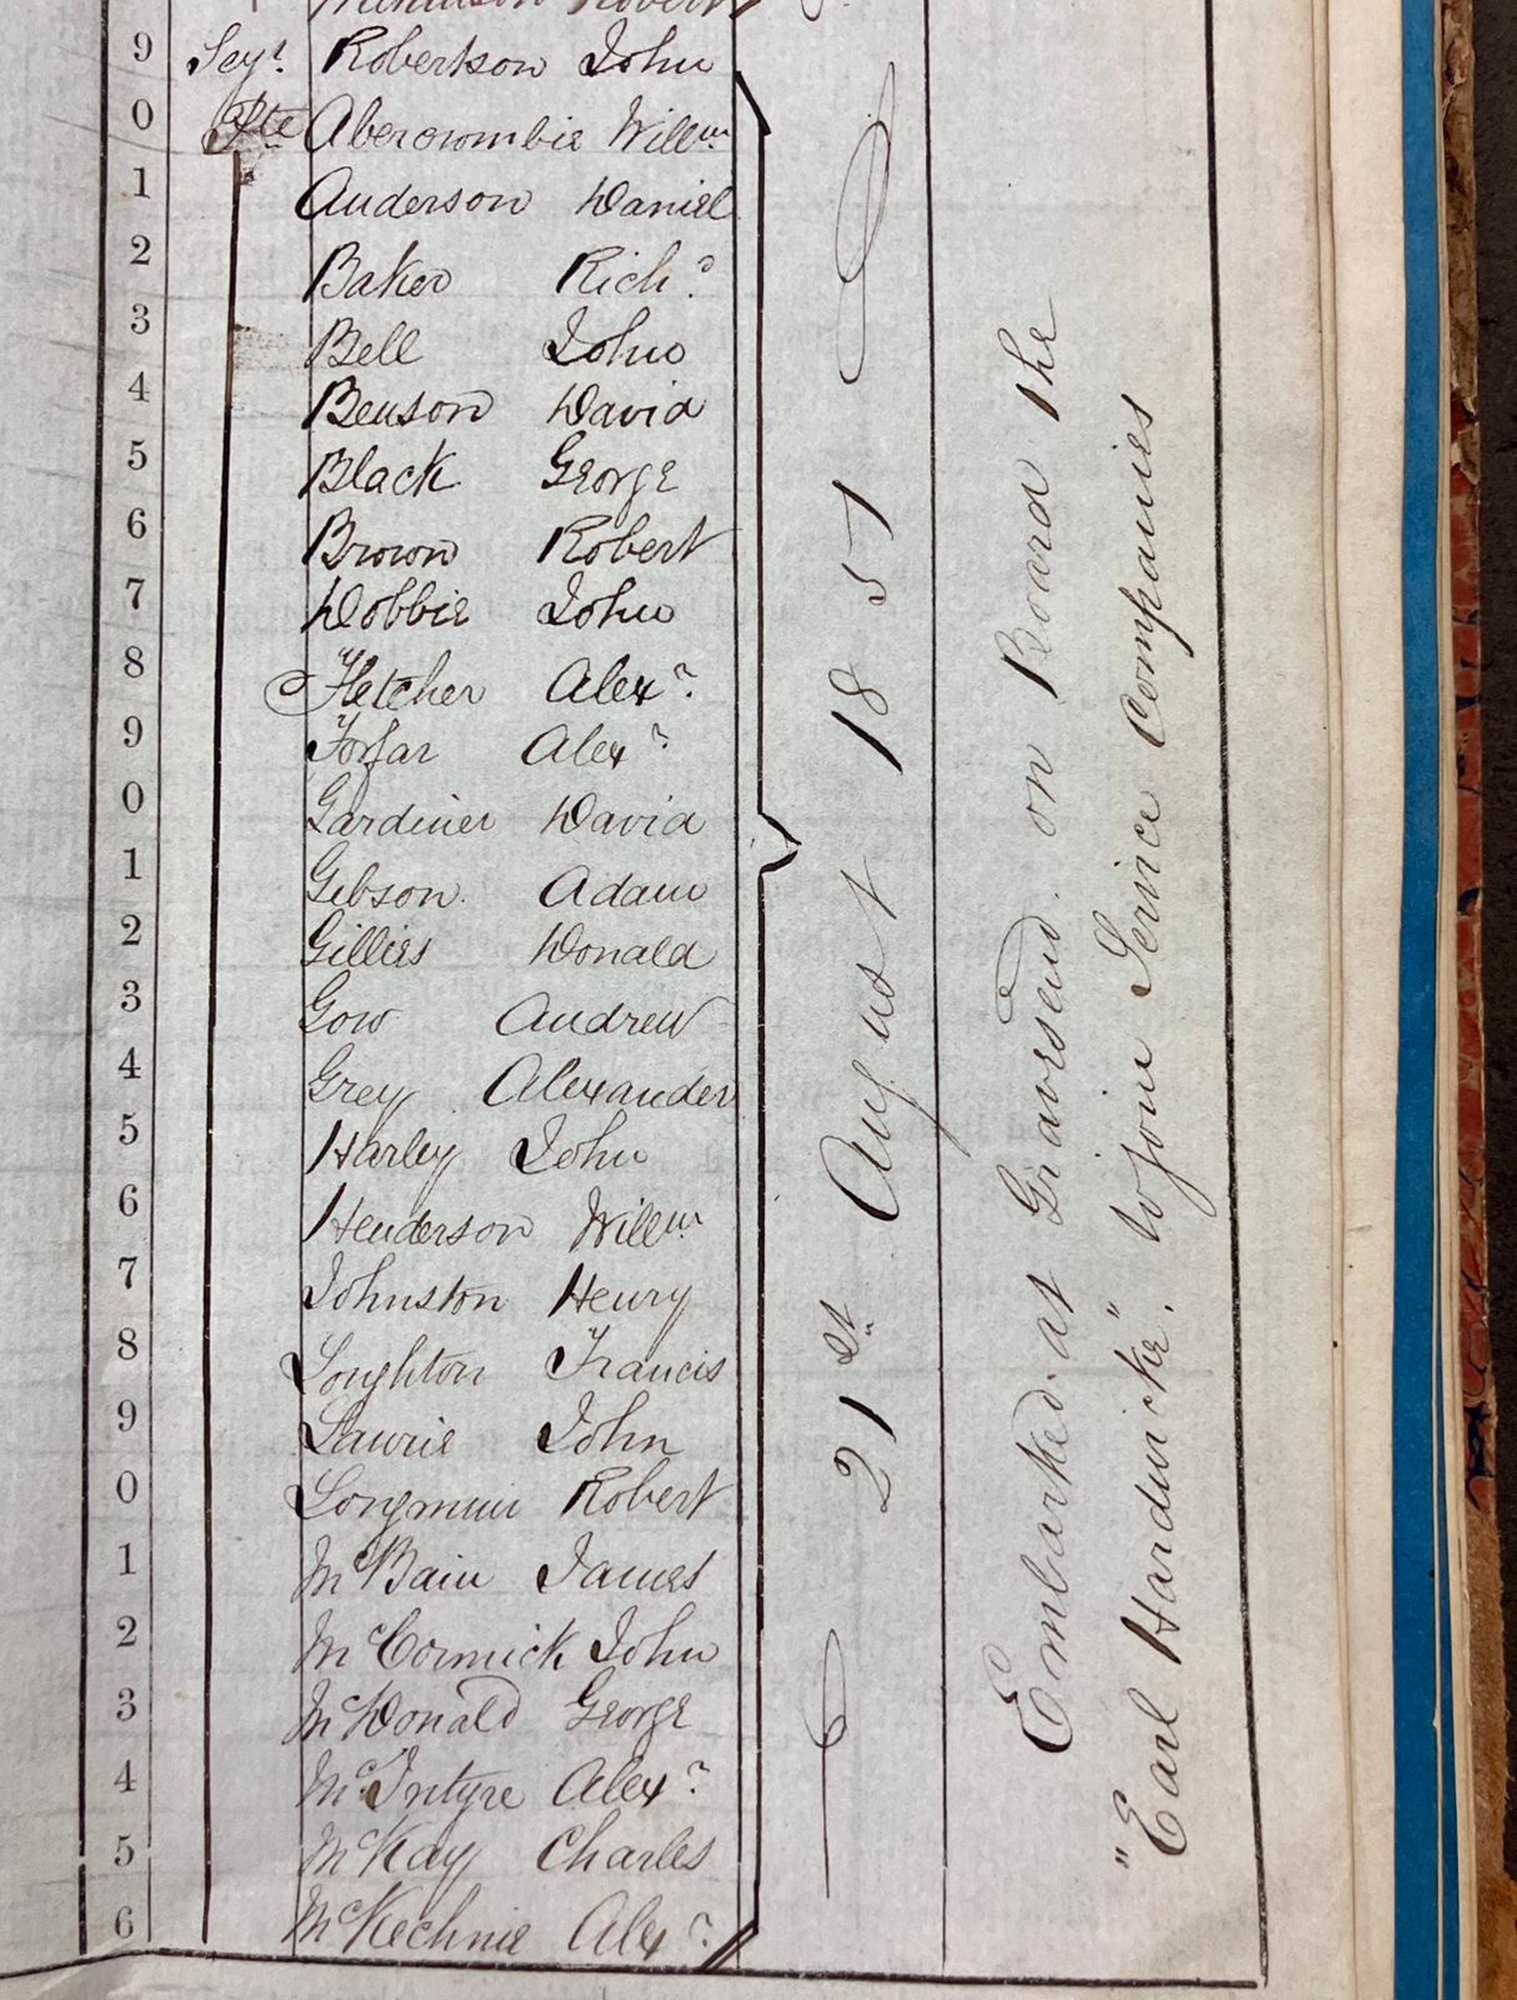 Robert
9 Serjt. Robertson John
0 Pte Abercrombie Willm
1 Anderson Daniel
2 Baker Richd
3 Bell John
4 Benson David
5 Black George
6 Brown Robert
7 Dobbie John
8 Fletcher Alexr
9 Forfar Alexr
0 Gardiner David
1 Gibson Adam
2 Gillies Donald
3 Gow Andrew
4 Grey Alexander
5 Harley John
6 Henderson Willm
7 Johnston Henry
8 Loughton Francis
9 Lawrie John
0 Longmuir Robert
1 McBain James
2 McCormick John
3 McDonald George
4 McIntyre Alexr
5 McKay Charles
6 McKechnie Alexr
21st August 1857
Embarked at Gravesend on Board the
"Earl Hardwicke". to join Service Companies